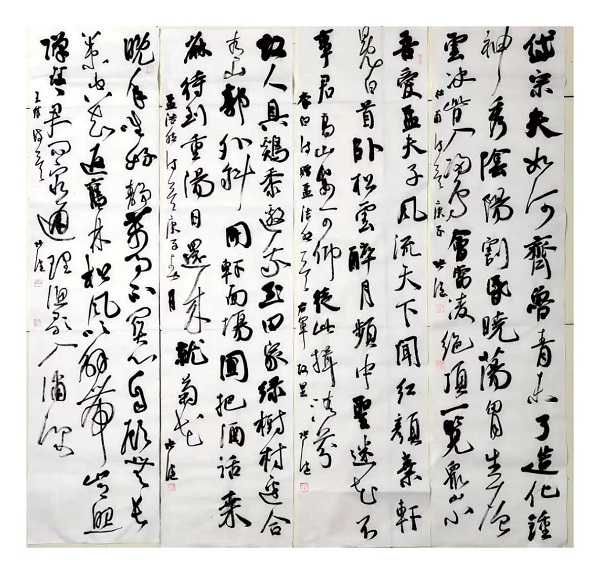 岱宗夫如何齊魯青未了造化鍾
神秀陰陽割昏曉蕩胷生層
雲決眥入歸鳥會當凌絕頂一覽衆山小
杜甫詩一首庚子
吾愛孟夫子風流天下聞紅顏棄軒
冕白首卧松雲醉月頻中聖迷花不
事君高山安可仰徒此揖清芬
李白詩贈孟浩然一首右軍故里
故人具鷄黍邀我至田家綠樹村邊合
青山郭外斜開軒面場圃把酒話桑
麻待到重陽日還來就菊花
孟浩然詩一首庚子五月
晚年唯好靜萬事不關心自顧無長
策空知返舊林松風吹解帶山月照
彈琴君問窮通理漁歌入浦深
王維詩一首